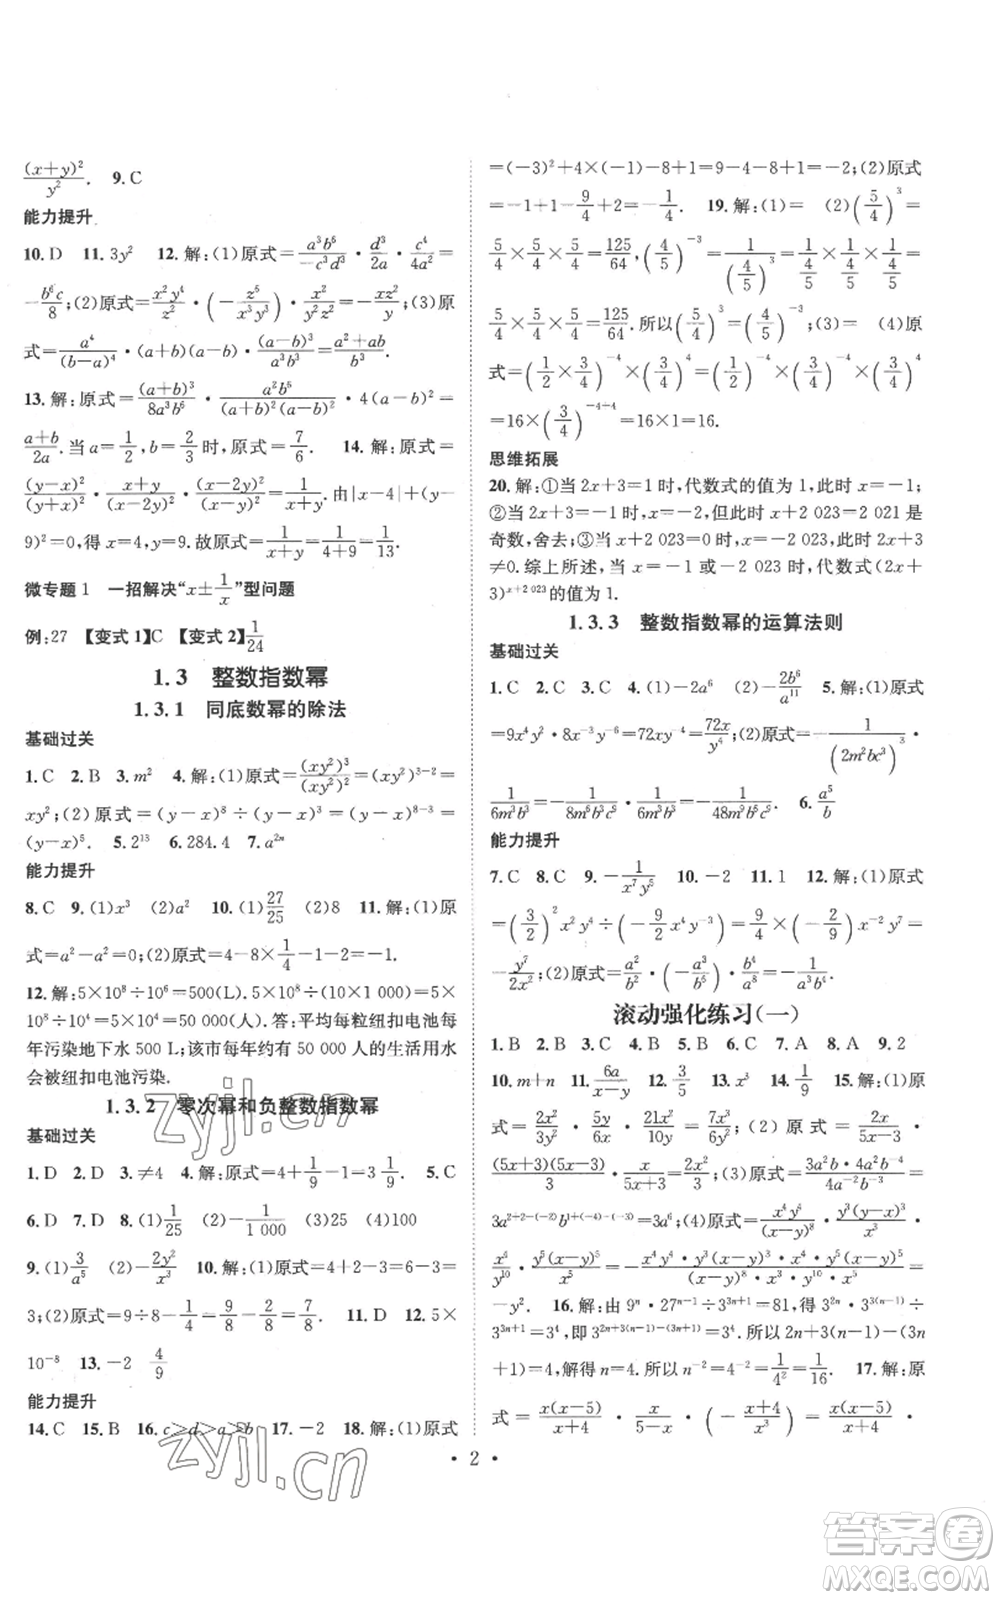 (x+y)²/y². 9.C
能力提升
10.D 11.3y² 12.解:(1)原式=a³b⁶/(-c³d³)·d³/2a·c⁴/4a²=
-b⁶c/8;(2)原式=x²y⁴/z²·(-z⁶/x³y³)·x²/y²z²=-xz²/y;(3)原
式=a⁴/(b-a)⁴·(a+b)(a-b)·(a-b)³/a³b³=(a²+ab)/b³.
13.解:原式=(a+b)³/8a³b⁶·a²b⁶/(a+b)²(a-b)²·4(a-b)²=
(a+b)/2a.当a=1/2,b=2/3时,原式=7/6. 14.解:原式=
(y-x)²/(y+x)²·(x+y)/(x-2y)²·(x-2y)²/(y-x)²=1/(x+y).由|x-4|+(y-
9)²=0,得x=4,y=9.故原式=1/(x+y)=1/(4+9)=1/13.
微专题1 一招解决“x±1/x”型问题
例:27 【变式1】C 【变式2】1/24
1.3 整数指数幂
1.3.1 同底数幂的除法
基础过关
1.C 2.B 3.m² 4.解:(1)原式=(xy²)³/(xy²)²=(xy²)³⁻²=
xy²;(2)原式=(y-x)⁸÷(y-x)³=(y-x)⁸⁻³=
(y-x)⁵. 5.2¹³ 6.284.4 7.a²ⁿ
能力提升
8.C 9.(1)x³ (2)a² 10.(1)27/25 (2)8 11.解:(1)原
式=a²-a²=0;(2)原式=4-8×1/4-1-2=-1.
12.解:5×10⁸÷10⁶=500(L).5×10⁵÷10=5×
10⁵÷10=5×10⁴=50 000(人).答:平均每粒纽扣电池每
年污染地下水500 L;该市每年约有50 000人的生活用水
会被纽扣电池污染.
1.3.2 零次幂和负整数指数幂
基础过关
1.D 2.D 3.≠4 4.解:原式=4+1/9-1=3 1/9. 5.C
6.D 7.D 8.(1)1/25 (2)-1/1 000 (3)25 (4)100
9.(1)3/a⁵ (2)-2y²/x³ 10.解:(1)原式=4+2-3=6-3=
3;(2)原式=9÷8-1/4=9/8-2/8=7/8. 11.D 12.5×
10⁻⁸ 13.-2 4/9
能力提升
14.C 15.B 16.c>d>a>b 17.-2 18.解:(1)原式
=(-3)²+4×(-1)-8+1=9-4-8+1=-2;(2)原式
=-1+1-9/4+2=-1/4. 19.解:(1)= (2)(5/4)³=
5/4×5/4×5/4=125/64,(4/5)⁻³=1/(4/5)³=
5/4×5/4×5/4=125/64.所以(5/4)³=(4/5)⁻³;(3)= (4)原
式=(1/2×3/4)⁻⁴×(3/4)⁻⁴=(1/2)⁻⁴×(3/4)⁻⁴×(3/4)⁻⁴
=16×(3/4)⁻⁴⁺⁴=16×1=16.
思维拓展
20.解:①当2x+3=1时,代数式的值为1,此时x=-1;
②当2x+3=-1时,x=-2,但此时x+2 023=2 021是
奇数,舍去;③当x+2 023=0时,x=-2 023,此时2x+3
≠0.综上所述,当x=-1或-2 023时,代数式(2x+
3)ˣ⁺²⁰²³的值为1.
1.3.3 整数指数幂的运算法则
基础过关
1.C 2.C 3.C 4.(1)-2a⁶ (2)-2b⁶/a¹¹ 5.解:(1)原式
=9x⁴y²·8x⁻³y⁻⁶=72xy⁻⁴=72x/y⁴;(2)原式=-1/(2m²bc³)³·
1/6m³b³=-1/8m⁶b³c⁹·1/6m³b³=-1/48m⁹b⁶c⁹. 6.a⁵/b
能力提升
7.C 8.C 9.-1/x⁷y⁵ 10.-2 11.1 12.解:(1)原式
=(3/2)²x²y⁴÷(-9/2x⁴y⁻³)=9/4×(-2/9)x⁻²y⁷=
-y⁷/2x²;(2)原式=a²/b²·b³/a⁵·b⁴/a²=1/a³b³·b⁸/a²
滚动强化练习(一)
1.B 2.B 3.C 4.D 5.C 6.C 7.A 8.A 9.2
10.m+n 11.6a/(x-y) 12.3/5 13.x³ 14.1/9 15.解:(1)原
式=2x²/3y²·5y/6x·21x²/10y=7x³/6y²;(2)原式=2x/(5x-3)·
(5x+3)(5x-3)/3·x/(5x+3)=2x²/3;(3)原式=3a²b·4a²b⁻⁴/4a⁻²b⁻³=
3a²⁺²⁻⁽⁻²⁾b¹⁺⁽⁻⁴⁾⁻⁽⁻³⁾=3a⁶;(4)原式=x⁴y⁶/(x-y)²·y⁶(y-x)³/x³·
x⁶/y¹⁰·y(x-y)⁵/x⁵=
-y². 16.解:由9ⁿ·27ⁿ⁻¹÷3³ⁿ⁺¹=81,得3²ⁿ·3³⁽ⁿ⁻¹⁾÷
3³ⁿ⁺¹=3⁴,即3²ⁿ⁺³⁽ⁿ⁻¹⁾⁻⁽³ⁿ⁺¹⁾=3⁴.所以2n+3(n-1)-(3n
+1)=4,解得n=4.所以n⁻²=4⁻²=1/4²=1/16. 17.解:原
式=x(x-5)/(x+4)·x/(5-x)·(-(x+4)/x²)·
·2·
zyjl.cn
zyjl.cn
答案卷
MXQE.COM